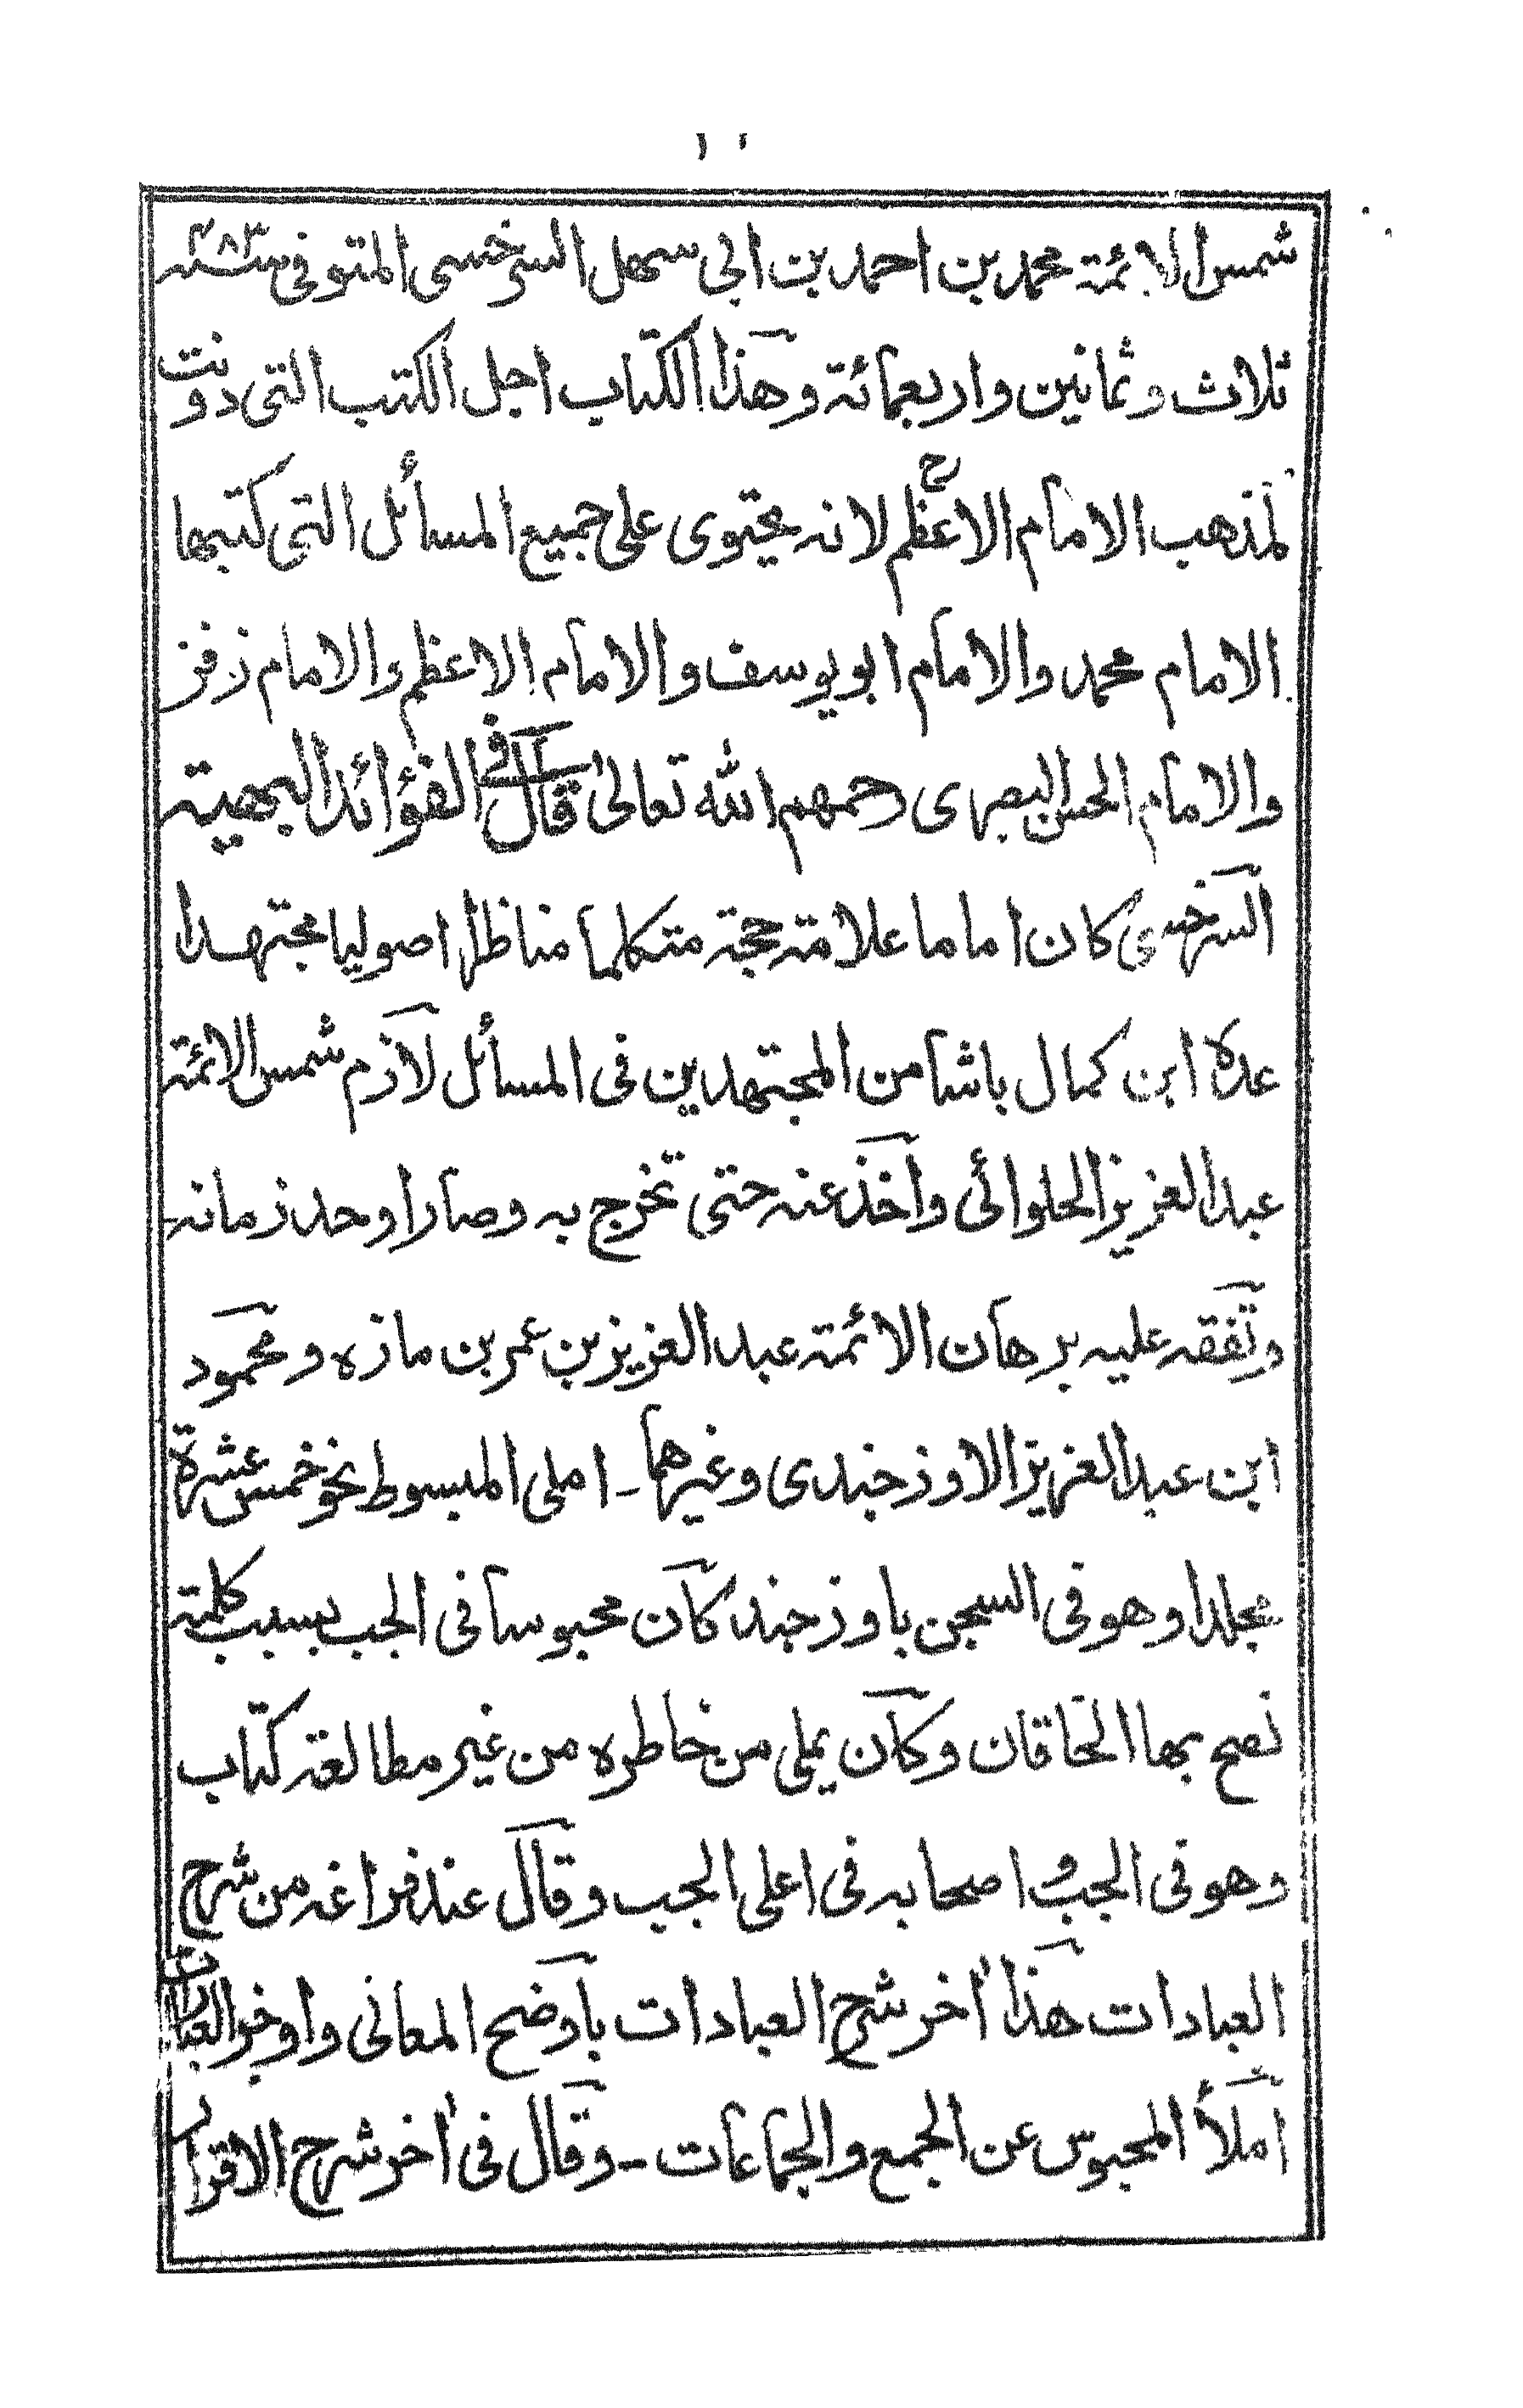 ١٠
شمس الائمة محمد بن احمد بن ابی سهل السرخسی المتوفی سنة ۴۸۳
ثلاث و ثمانین و اربعمائة و هذا الکتاب اجل الکتب التی دونت
لمذهب الامام الاعظمؒ لانه یحتوی علی جمیع المسائل التی کتبها
الامام محمد والامام ابو یوسف والامام الاعظم والامام زفر
والامام الحسن البصری رحمهم الله تعالیٰ قال فی الفوٴائد البهیة
السرخسی کان اماما علامة حجة متکلما مناظرا اصولیا مجتهدا
عده ابن کمال باشا من المجتهدین فی المسائل لازم شمس الائمة
عبد العزیز الحلوائی واخذ عنه حتی تخرج به وصار اوحد زمانه
وتفقه علیه برهان الائمة عبد العزیز بن عمر بن مازه و محمود
ابن عبد العزیز الاوزجندی وغیرهما ـ املی المبسوط نحو خمس عشرة
مجلدا وهو فی السجن باوزجند کان محبوسا فی الجب بسبب کلمة
نصح بها الخاقان وکان یملی من خاطره من غیر مطالعة کتاب
وهو فی الجب و اصحابه فی اعلی الجب وقال عند فراغه من شرح
العبادات هذا اٰخر شرح العبادات باوضح المعانی واوجز العبارات
املأ المحبوس عن الجمع والجماعات ـ وقال فی اٰخر شرح الاقرار